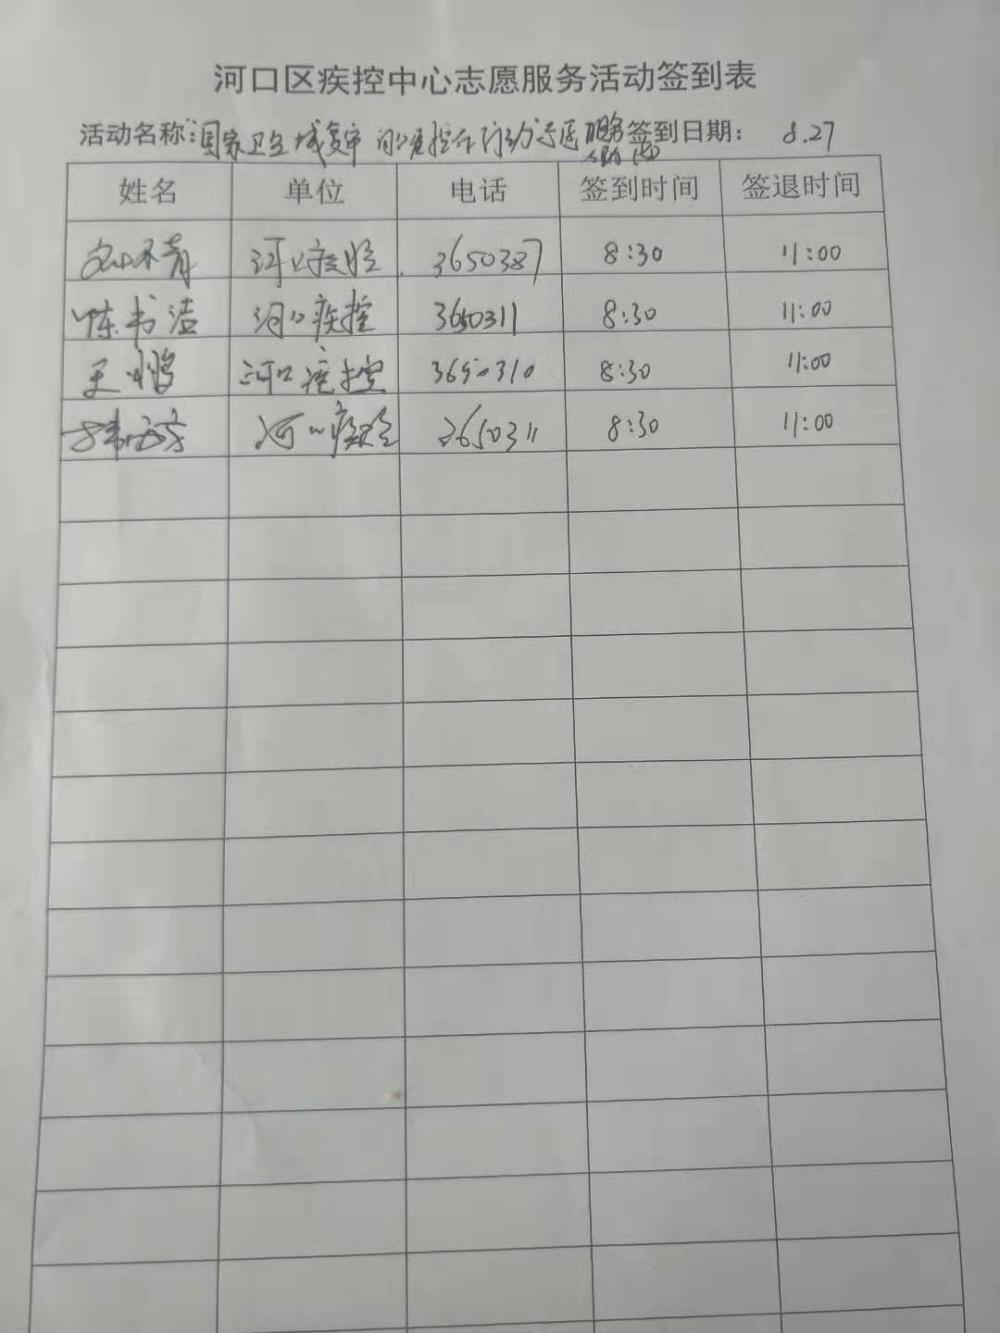 河口区疾控中心志愿服务活动签到表
活动名称：国家卫生城复审 志愿服务 签到日期： 8.27
活动
姓名 单位 电话 签到时间 签退时间
河口疾控 3650387 8:30 11:00
陈书洁 河口疾控 3650311 8:30 11:00
王鹏 河口疾控 3650310 8:30 11:00
河口疾控 3650311 8:30 11:00